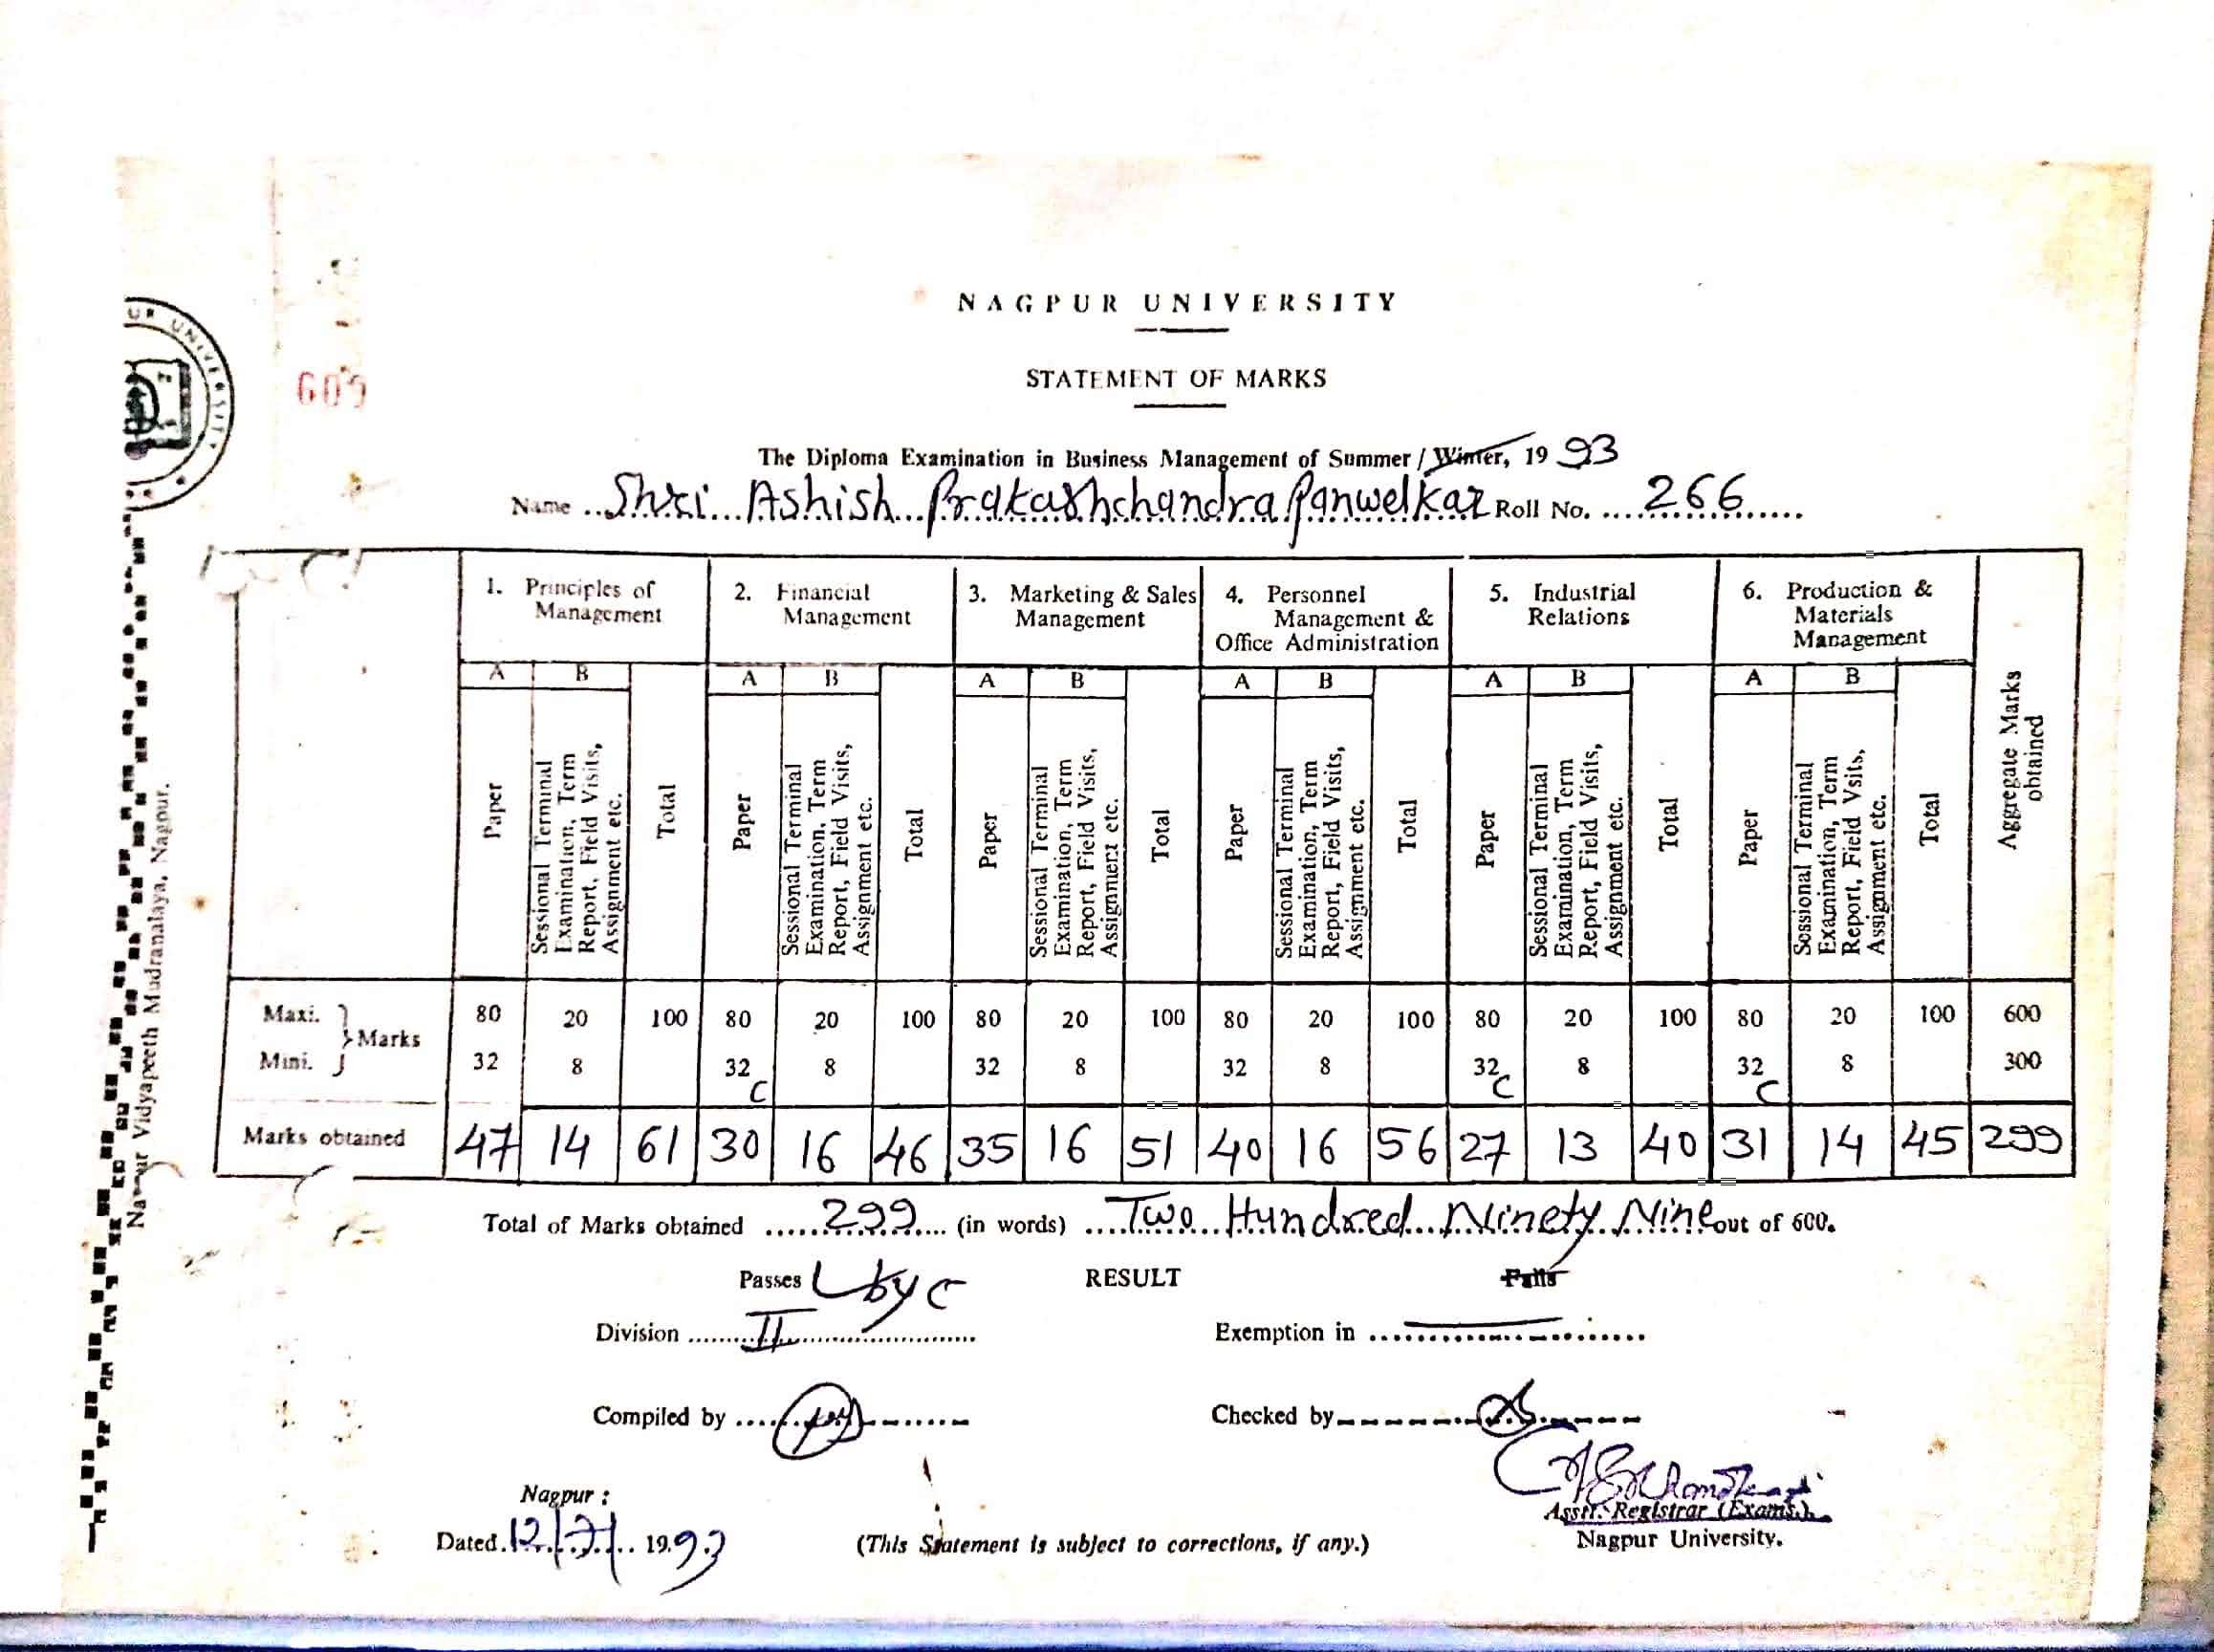 NAGPUR UNIVERSITY
STATEMENT OF MARKS
UR UNIVERSITY
609
The Diploma Examination in Business Management of Summer / Winter, 19 93
Name ..Shri...Ashish...Prakashchandra Panwelkar Roll No. ....266......
1. Principles of Management
2. Financial Management
3. Marketing & Sales Management
4. Personnel Management & Office Administration
5. Industrial Relations
6. Production & Materials Management
Aggregate Marks obtained
A B A B A B A B A B A B
Paper
Sessional Terminal Examination, Term Report, Field Visits, Assignment etc.
Total
Paper
Sessional Terminal Examination, Term Report, Field Visits, Assignment etc.
Total
Paper
Sessional Terminal Examination, Term Report, Field Visits, Assignment etc.
Total
Paper
Sessional Terminal Examination, Term Report, Field Visits, Assignment etc.
Total
Paper
Sessional Terminal Examination, Term Report, Field Visits, Assignment etc.
Total
Paper
Sessional Terminal Examination, Term Report, Field Vsits, Assignment etc.
Total
Maxi. 80 20 100 80 20 100 80 20 100 80 20 100 80 20 100 80 20 100 600
Marks
Mini. 32 8 32 8 32 8 32 8 32 8 32 8 300
C C C
Marks obtained 47 14 61 30 16 46 35 16 51 40 16 56 27 13 40 31 14 45 299
Total of Marks obtained .....299.... (in words) ....Two...Hundred...Ninety..Nine out of 600.
Passes by C RESULT Fails
Division ........II......................
Exemption in ..........................
Compiled by ....
Checked by
Nagpur :
Dated.12/7/.. 19.93
(This Statement is subject to corrections, if any.)
Asstt. Registrar (Exams.).
Nagpur University.
Nagpur Vidyapeeth Mudranalaya, Nagpur.